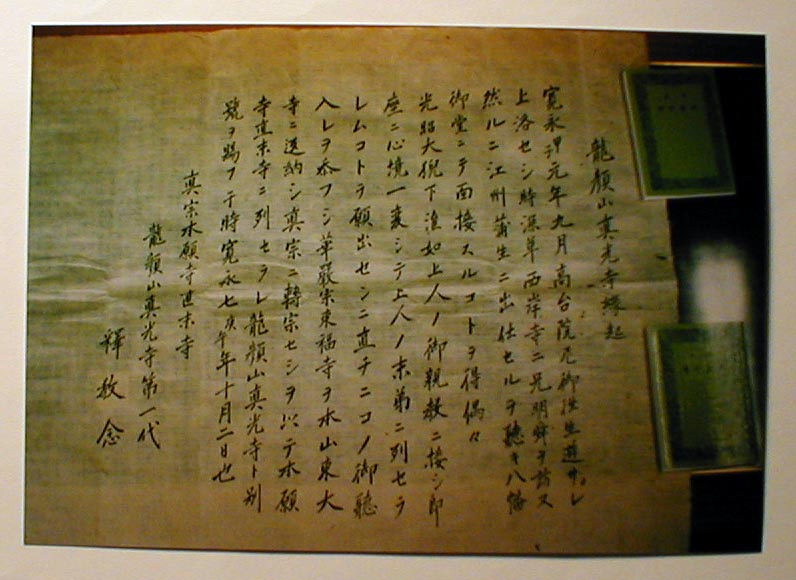 龍顏山真光寺縁起
寛永元年九月高台院尼御往生遊サレ
上洛セシ時深草西岸寺ニ兄明舜ヲ訪ヌ
然ルニ江州蒲生ニ出仕セルヲ聴キ八幡
御堂ニテ面接スルコトヲ得偶々
光昭大猊下准如上人ノ御親教ニ接シ即
座ニ心境一変シテ上人ノ末弟ニ列セラ
レムコトヲ願出センニ直チニコノ御聴
入レヲ忝フシ華嚴宗東福寺ヲ本山東大
寺ニ送納シ真宗ニ轉宗セシヲ以テ本願
寺直末寺ニ列セラレ龍顏山真光寺ト別
號ヲ賜フ于時寛永七庚午年十月二日也
真宗本願寺直末寺
龍顏山真光寺第一代
釋敎念